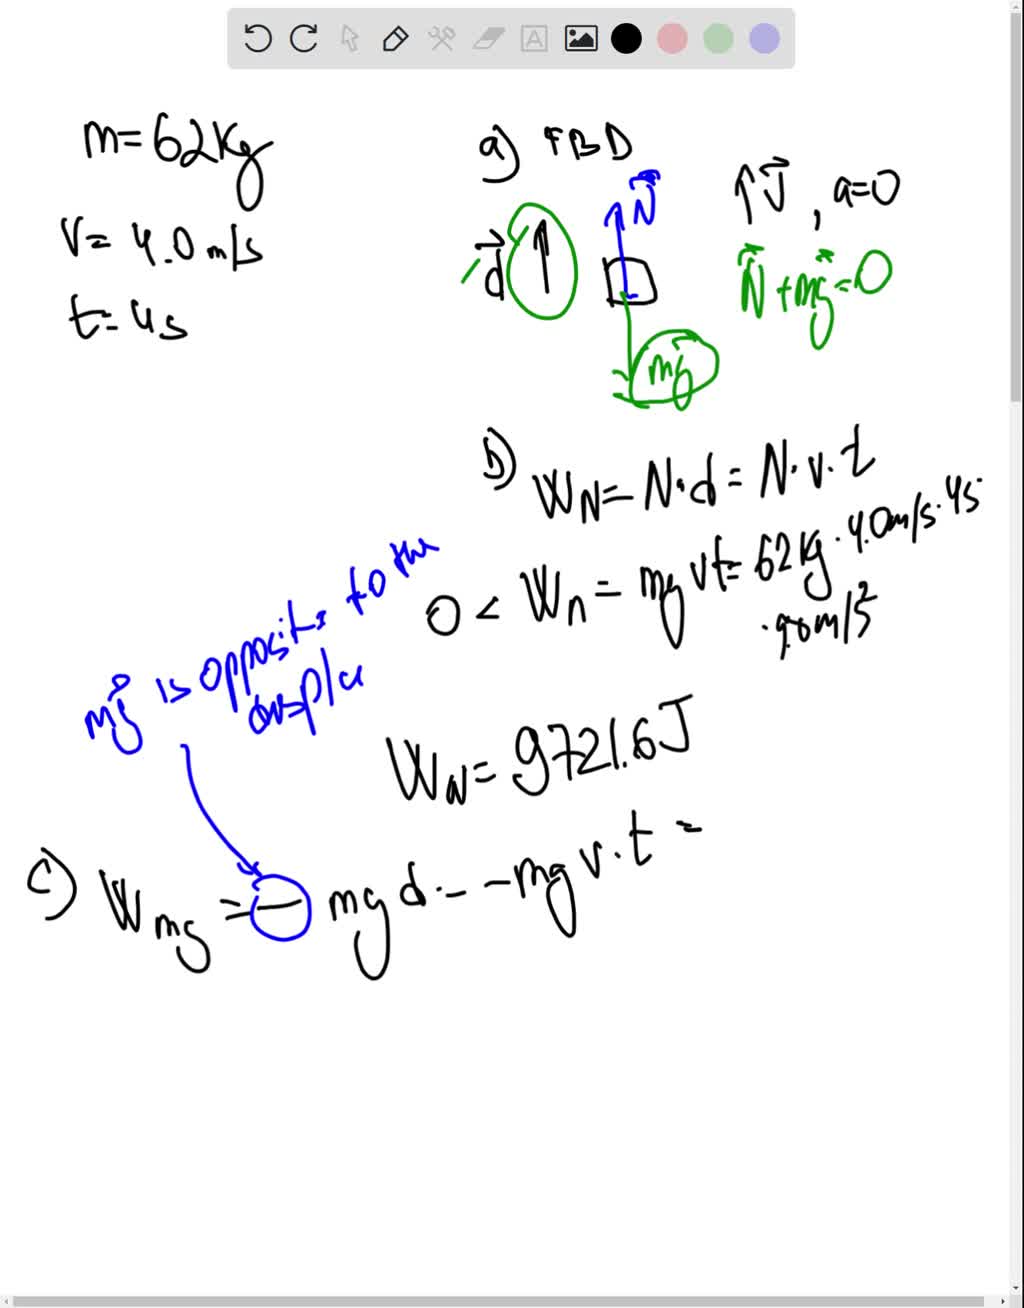 m=62Kg
V= 4.0 m/s
t= 4s
a) FBD
N
d
mg
V, a=0
N + mg = 0
b) W_N = N·d = N·v·t
0 < W_n = mg vt = 62 kg · 4.0 m/s · 4s
· 9.8 m/s²
W_N = 9721.6 J
mg is opposite to the
displa
c) W_mg = − mg d = −mg v·t =